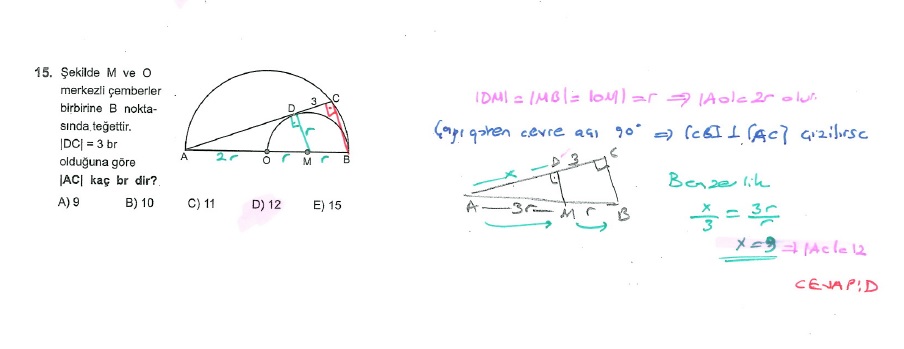 15. Şekilde M ve O
merkezli çemberler
birbirine B nokta-
sında teğettir.
|DC| = 3 br
olduğuna göre
|AC| kaç br dir?
A) 9 B) 10 C) 11 D) 12 E) 15
D 3 C
r
A 2r O r M r B
|DM| = |MB| = |OM| = r ⇒ |AO| = 2r olur.
Çapı gören çevre açı 90° ⇒ [CB] ⊥ [AC] çizilirse
x D 3 C
A 3r M r B
Benzerlik
x/3 = 3r/r
x = 9 ⇒ |AC| = 12
CEVAP: D